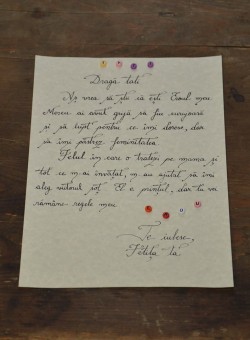 Dragă tati
Aș vrea să știi că ești Eroul meu.
Mereu ai avut grijă să fiu curajoasă
și să lupt pentru ce îmi doresc, dar
să îmi păstrez feminitatea.
Felul în care o tratezi pe mama și
tot ce m-ai învățat, m-au ajutat să îmi
aleg viitorul soț. El e prințul, dar tu vei
rămâne regele meu.
Te iubesc,
Fetița ta